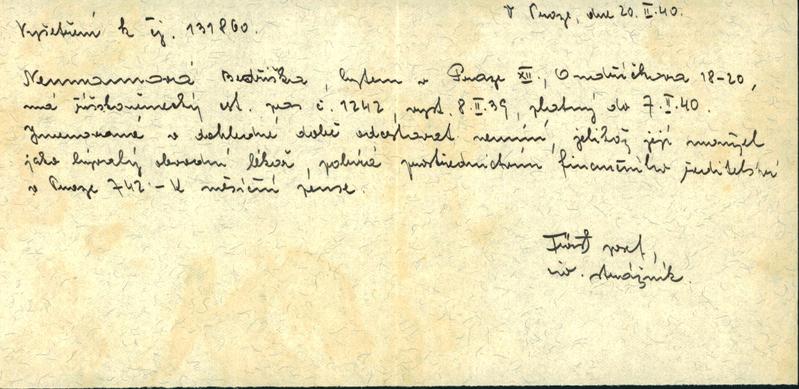 V Praze, dne 20.II.40.
Vyšetření k čj. 131860.
Neumannová Bedřiška, bytem v Praze XII., Ondříčkova 18-20,
má říšskoněmecký cest. pas č. 1242, vyst. 8.II.39, platný do 7.II.40.
Jmenovaná v dohledné době odcestovat nemíní, jelikož její manžel
jako bývalý obvodní lékař, pobírá prostřednictvím finančního ředitelství
v Praze 742.- K měsíční pense.
Fürst Josef,
strážník.